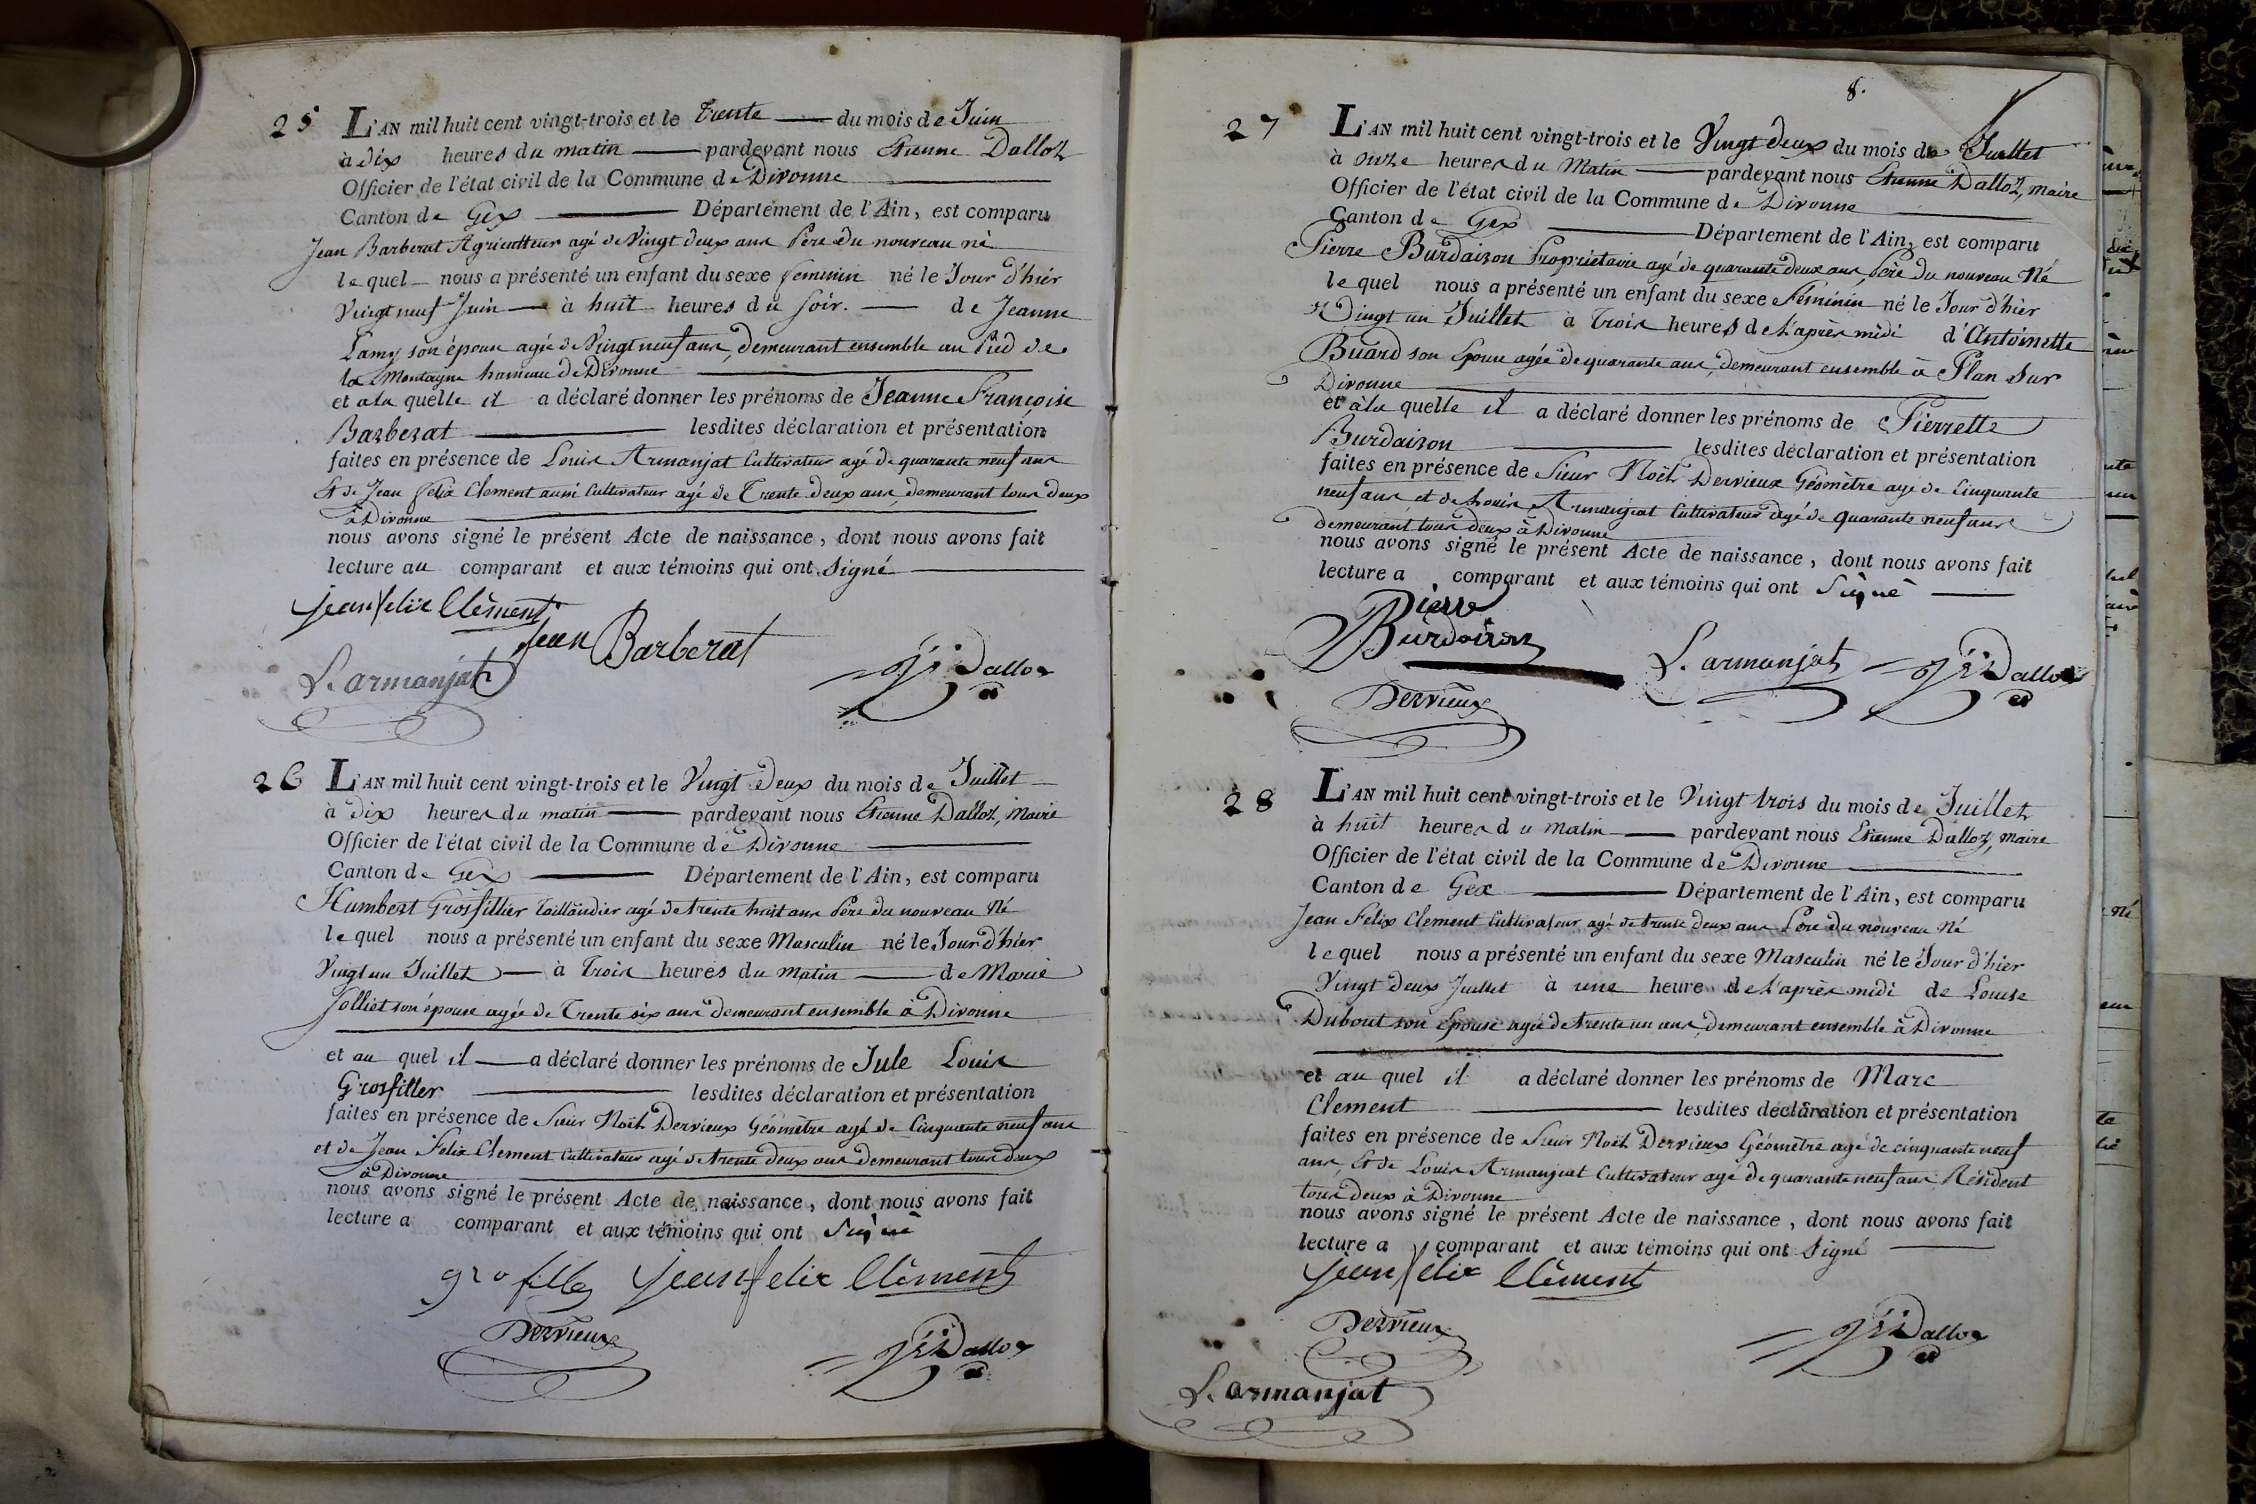 25
L'AN mil huit cent vingt-trois et le trente du mois de Juin
à dix heures du matin pardevant nous Etienne Dalloz
Officier de l'état civil de la Commune de Divonne
Canton de Gex Département de l'Ain, est comparu
Jean Barberat Agriculteur agé de Vingt deux ans Père du nouveau né
le quel nous a présenté un enfant du sexe feminin né le Jour d'hier
Vingt neuf Juin à huit heures du soir. de Jeanne
Lamy son épouse agée de Vingt neuf ans, demeurant ensemble au Pied de
la Montagne hameau de Divonne
et a la quelle il a déclaré donner les prénoms de Jeanne Françoise
Barberat lesdites déclaration et présentation
faites en présence de Louis Armanjat Cultivateur agé de quarante neuf ans
Et de Jean Felix Clement aussi Cultivateur agé de Trente deux ans, demeurant tous deux
à Divonne
nous avons signé le présent Acte de naissance, dont nous avons fait
lecture au comparant et aux témoins qui ont signé
jean felix Clèment
Jean Barberat
L. armanjat
Dalloz
26
L'AN mil huit cent vingt-trois et le Vingt Deux du mois de Juillet
à dix heures du matin pardevant nous Etienne Dalloz, Maire
Officier de l'état civil de la Commune de Divonne
Canton de Gex Département de l'Ain, est comparu
Humbert Grosfillier Taillandier agé de trente huit ans Père du nouveau Né
le quel nous a présenté un enfant du sexe Masculin né le Jour d'hier
Vingt un Juillet à Trois heures du matin de Marie
Jolliet son épouse agée de Trente six ans demeurant ensemble à Divonne
et au quel il a déclaré donner les prénoms de Jule Louis
Grosfiller lesdites déclaration et présentation
faites en présence de Sieur Noël Dervieux Géomètre agé de Cinquante neuf ans
et de Jean Felix Clement Cultivateur agé de trente deux ans demeurant tous deux
à Divonne
nous avons signé le présent Acte de naissance, dont nous avons fait
lecture a comparant et aux témoins qui ont Signé
jean felix Clèment
Dervieux
Dalloz
8.
27
L'AN mil huit cent vingt-trois et le Vingt deux du mois de Juillet
à onze heures du Matin pardevant nous Etienne Dalloz, maire
Officier de l'état civil de la Commune de Divonne
Canton de Gex Département de l'Ain, est comparu
Pierre Burdairon Propriétaire agé de quarante deux ans, Père du nouveau Né
le quel nous a présenté un enfant du sexe Féminin né le Jour d'hier
Vingt un Juillet à Trois heures de l'après midi d'Antoinette
Buard son Epouse agée de quarante ans, demeurant ensemble à Plan Sur
Divonne
et à la quelle il a déclaré donner les prénoms de Pierrette
Burdairon lesdites déclaration et présentation
faites en présence de Sieur Noël Dervieux Géomètre agé de Cinquante
neuf ans et de Louis Armanjat Cultivateur agé de quarante neuf ans
demeurant tous deux à Divonne
nous avons signé le présent Acte de naissance, dont nous avons fait
lecture a comparant et aux témoins qui ont Signé
Pierre
Burdairon
L. armanjat
Dalloz
Dervieux
28
L'AN mil huit cent vingt-trois et le Vingt trois du mois de Juillet
à huit heures du matin pardevant nous Etienne Dalloz, maire
Officier de l'état civil de la Commune de Divonne
Canton de Gex Département de l'Ain, est comparu
Jean Felix Clement Cultivateur agé de trente deux ans Père du nouveau Né
le quel nous a présenté un enfant du sexe Masculin né le Jour d'hier
Vingt deux Juillet à une heure de l'après midi de Louise
Dubout son Epouse agée de trente un ans, demeurant ensemble à Divonne
et au quel il a déclaré donner les prénoms de Marc
Clement lesdites déclaration et présentation
faites en présence de Sieur Noël Dervieux Géomètre agé de cinquante neuf
ans Et de Louis Armanjat Cultivateur agé de quarante neuf ans, Résident
tous deux à Divonne
nous avons signé le présent Acte de naissance, dont nous avons fait
lecture a comparant et aux témoins qui ont Signé
jean félix Clèment
Dervieux
Dalloz
L. armanjat